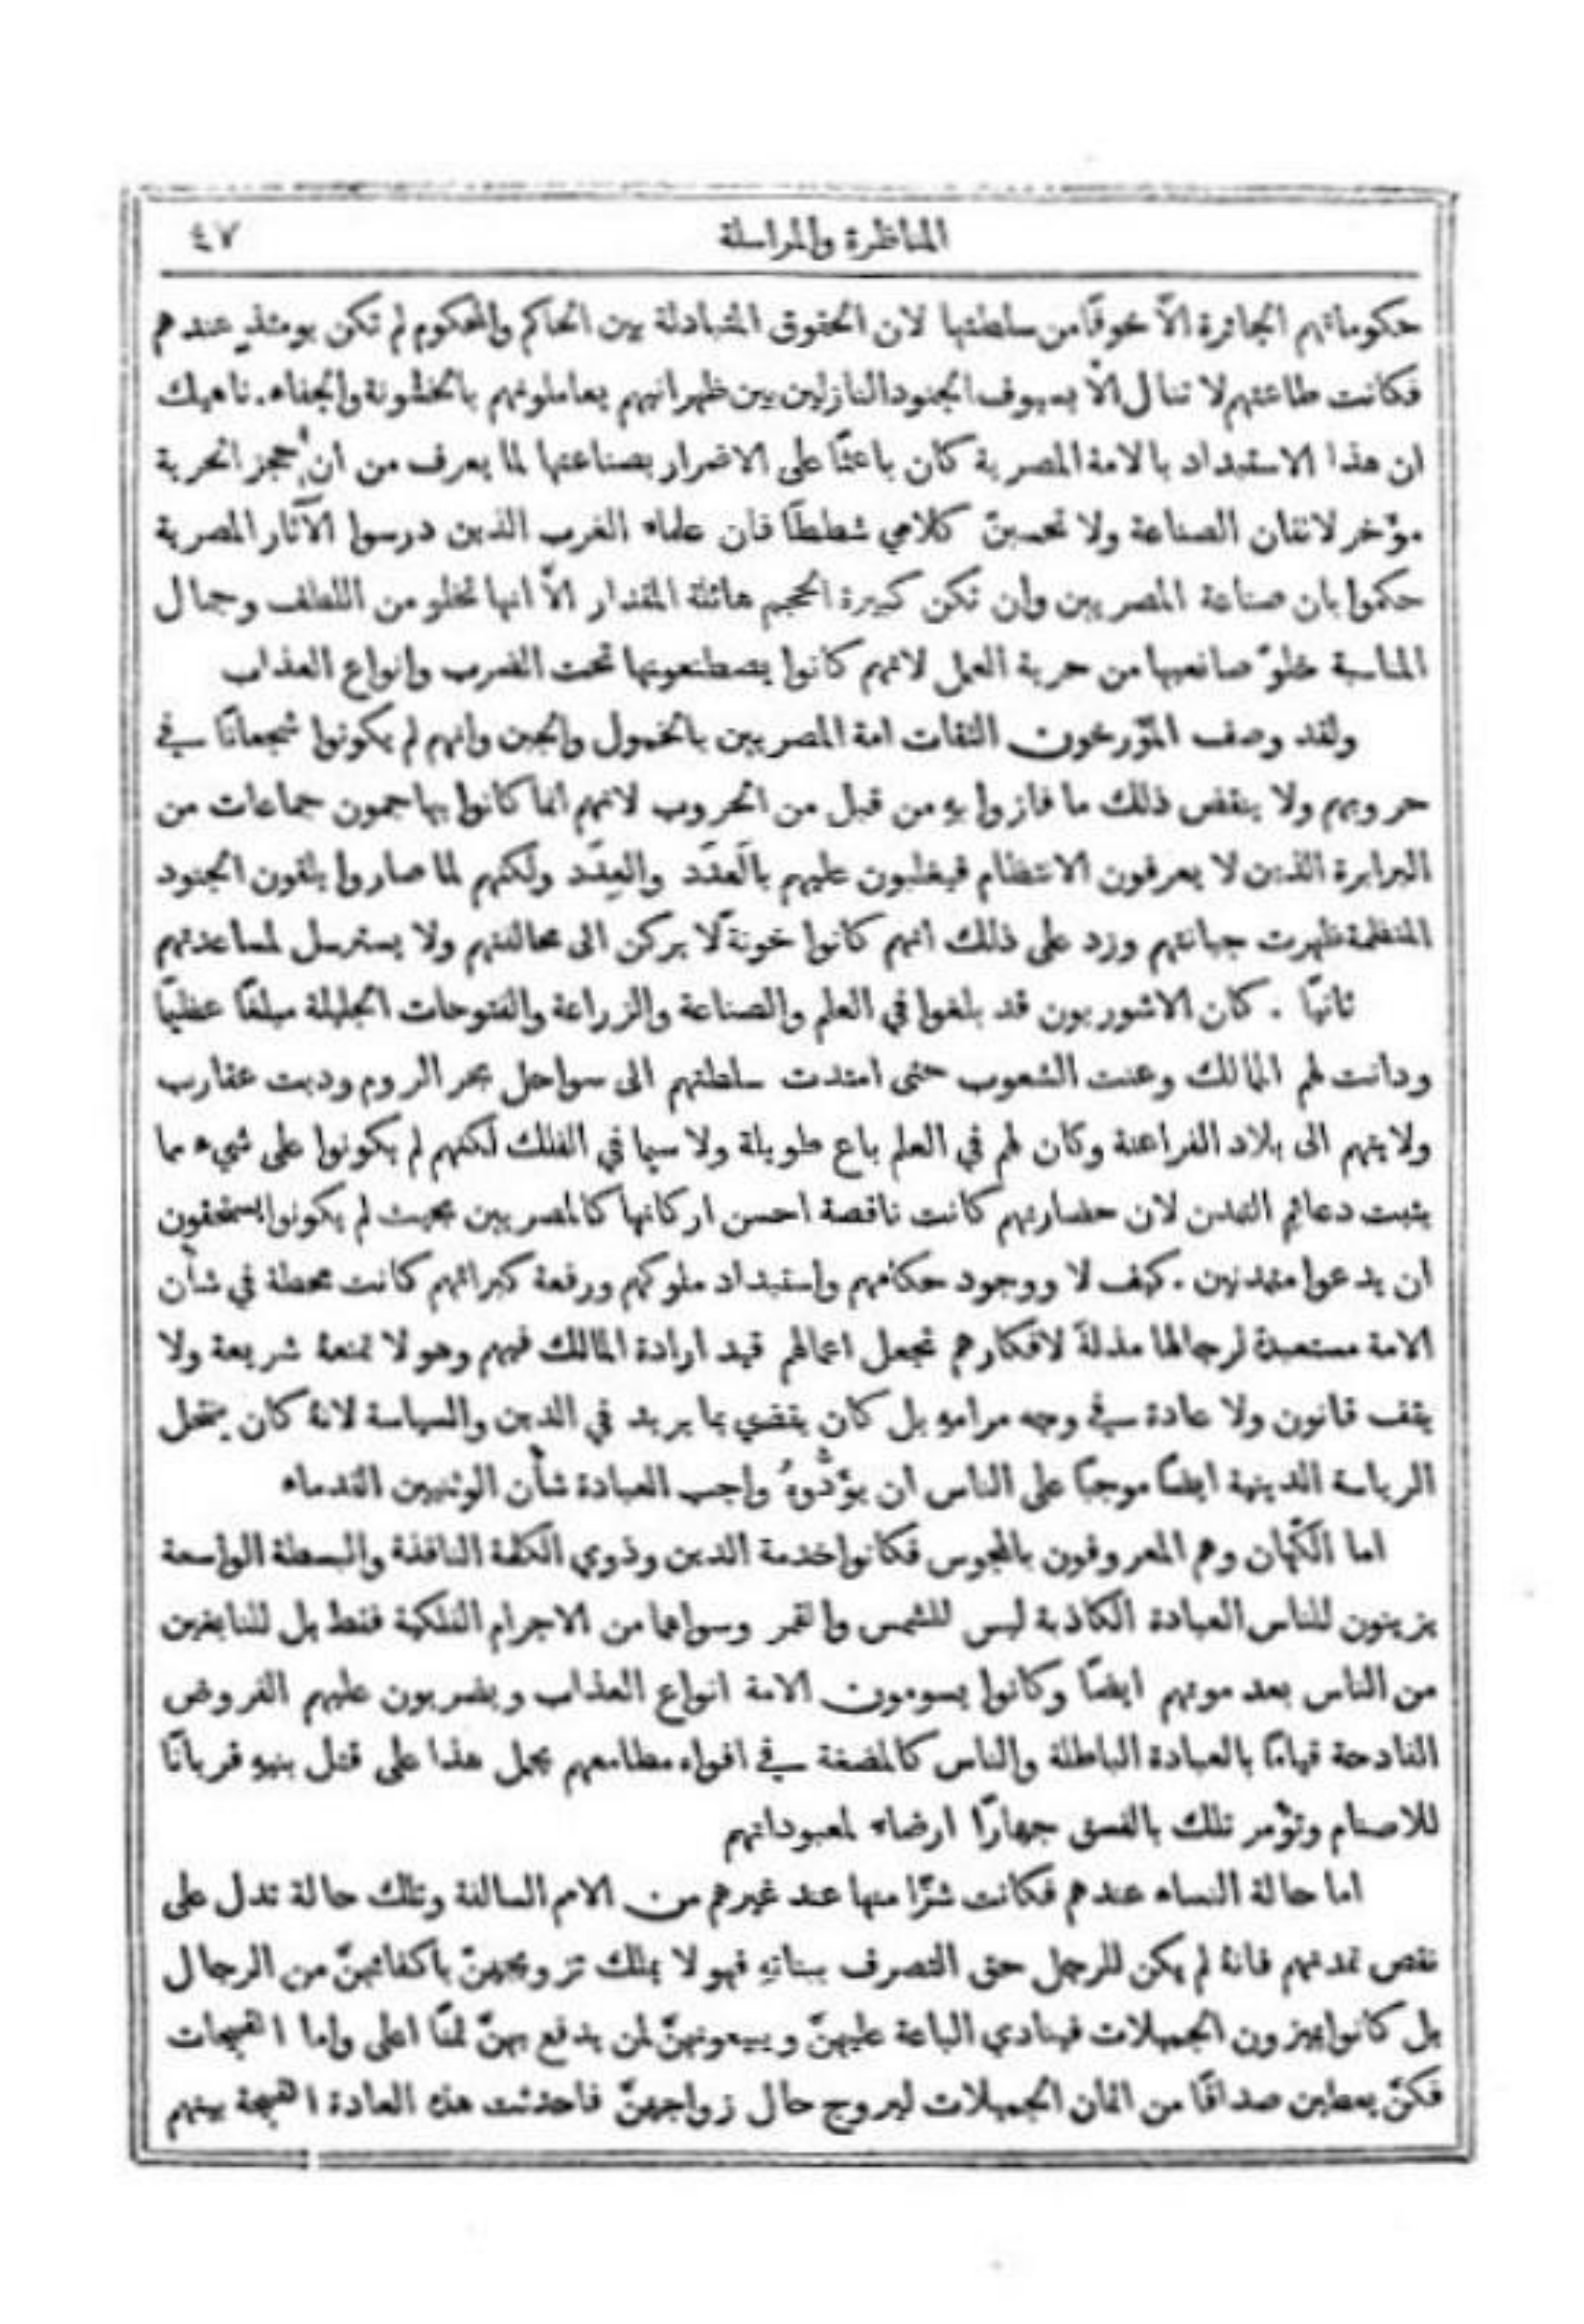 المناظرة والمراسلة
٤٧
حكوماتهم الجائرة الّا خوفًا من سلطتها لان الحقوق المتبادلة بين الحاكم والمحكوم لم تكن يومئذٍ عندهم
فكانت طاعتهم لا تنال الّا بسيوف الجنود النازلين بين ظهرانيهم يعاملونهم بالخشونة والجفاء. ناهيك
ان هذا الاستبداد بالامة المصرية كان باعثًا على الاضرار بصناعتها لما يعرف من ان حجز الحرية
مؤخر لاتقان الصناعة ولا تحسبنّ كلامي شططًا فان علماء الغرب الذين درسوا الآثار المصرية
حكموا بان صناعة المصريين وان تكن كبيرة الحجم هائلة المقدار الّا انها تخلو من اللطف وجمال
المناسبة خلوّ صانعيها من حرية العمل لانهم كانوا يصطنعونها تحت الضرب وانواع العذاب
ولقد وصف المؤرخون الثقات امة المصريين بالخمول والجبن وانهم لم يكونوا شجعانًا في
حروبهم ولا ينقض ذلك ما فازوا بهِ من قبل من الحروب لانهم انما كانوا يهاجمون جماعات من
البرابرة الذين لا يعرفون الانتظام فيغلبون عليهم بالعَدَد والعِدَد ولكنهم لما صاروا يلقون الجنود
المنظمة ظهرت جبانتهم وزد على ذلك انهم كانوا خونةً لا يركن الى محالفتهم ولا يسترسل لمساعدتهم
ثانيًا . كان الاشوريون قد بلغوا في العلم والصناعة والزراعة والفتوحات الجليلة مبلغًا عظيمًا
ودانت لهم الممالك وعنت الشعوب حتى امتدت سلطتهم الى سواحل بحر الروم ودبت عقارب
ولايتهم الى بلاد الفراعنة وكان لهم في العلم باع طويلة ولا سيما في الفلك لكنهم لم يكونوا على شيء مما
يثبت دعائم التمدن لان حضارتهم كانت ناقصة احسن اركانها كالمصريين بحيث لم يكونوا يستحقون
ان يدعوا متمدنين . كيف لا ووجود حكامهم واستبداد ملوكهم ورفعة كبرائهم كانت محطة في شأن
الامة مستعبدة لرجالها مذلة لافكارهم تجعل اعمالهم قيد ارادة المالك فيهم وهو لا تمنعهُ شريعة ولا
يقف قانون ولا عادة في وجه مرامهِ بل كان يقضي بما يريد في الدين والسياسة لانهُ كان ينتحل
الرياسة الدينية ايضًا موجبًا على الناس ان يؤدُّوهُ واجب العبادة شأن الوثنيين القدماء
اما الكهّان وهم المعروفون بالمجوس فكانوا خدمة الدين وذوي الكلمة النافذة والبسطة الواسعة
يزينون للناس العبادة الكاذبة ليس للشمس والقمر وسواهما من الاجرام الفلكية فقط بل للنابغين
من الناس بعد موتهم ايضًا وكانوا يسومون الامة انواع العذاب ويضربون عليهم الفروض
الفادحة قيامًا بالعبادة الباطلة والناس كالمضغة في افواه مطامعهم يحمل هذا على قتل بنيهِ قربانًا
للاصنام وتؤمر تلك بالفسق جهارًا ارضاء لمعبوداتهم
اما حالة النساء عندهم فكانت شرًّا منها عند غيرهم من الامم السالفة وتلك حالة تدل على
نقص تمدنهم فانهُ لم يكن للرجل حق التصرف ببناتهِ فهو لا يملك تزويجهنّ باكفائهنّ من الرجال
بل كانوا يبرزون الجميلات فينادي الباعة عليهنّ ويبيعونهنّ لمن يدفع بهنّ ثمنًا اعلى واما القبيحات
فكنّ يعطين صداقًا من اثمان الجميلات ليروج حال زواجهنّ فاحدثت هذه العادة القبيحة بينهم